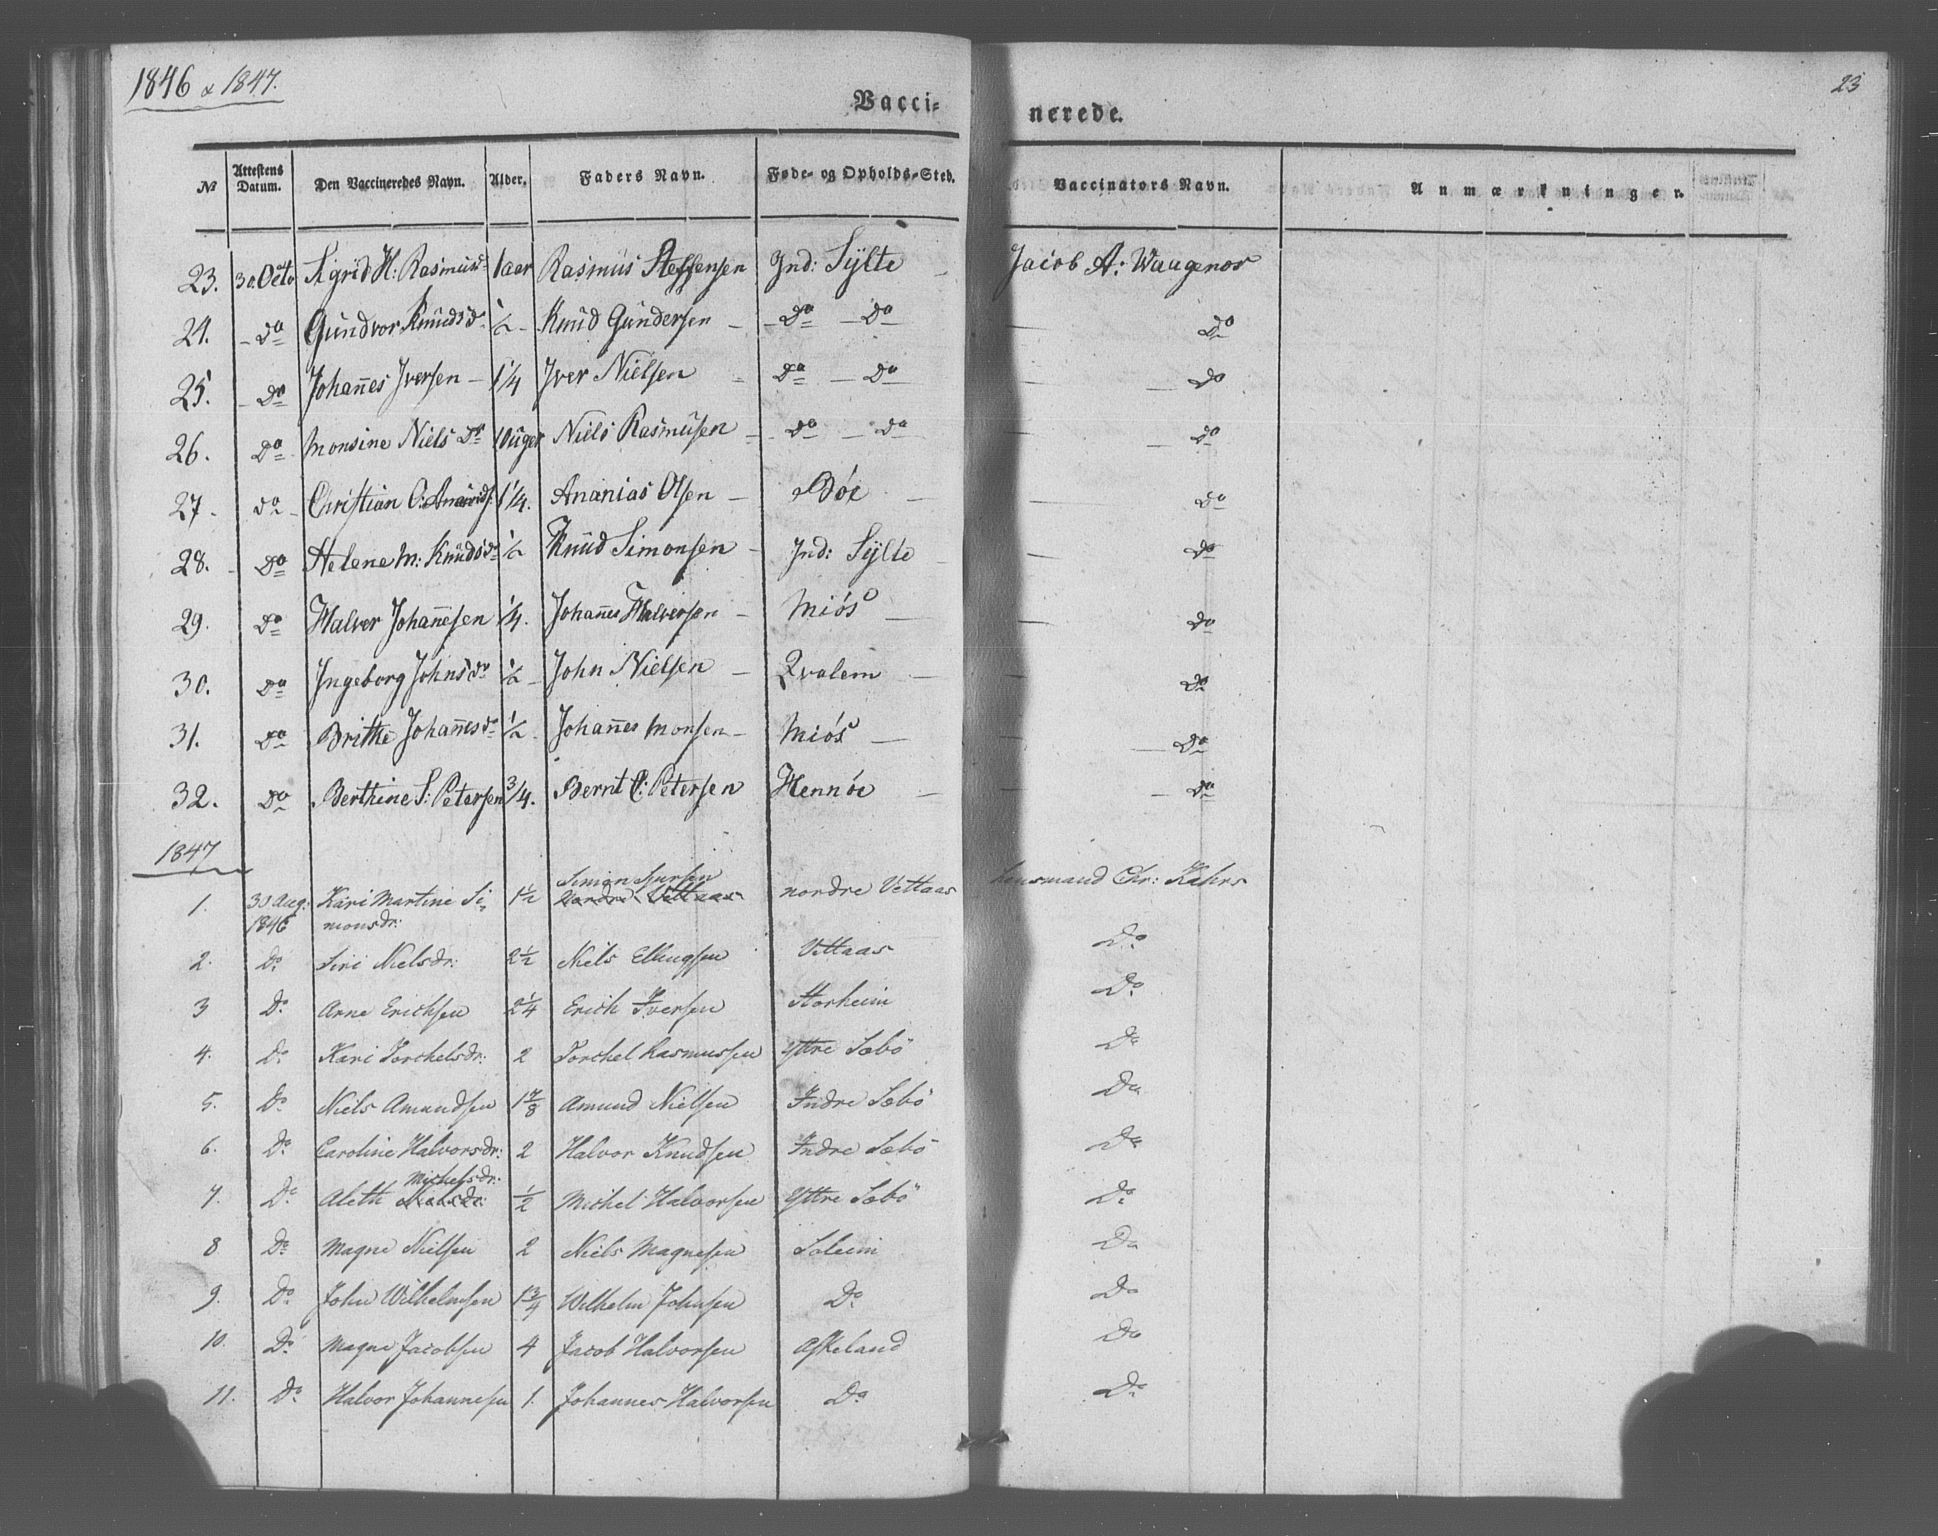 1846 & 1847.
23
Vacci- nerede.
№ Attestens Datum. Den Vaccineredes Navn. Alder. Faders Navn. Føde- og Opholds-Sted. Vaccinators Navn. Anmærkninger.
23. 30. Octo Sigrid H: Rasmusd 1 aar Rasmus Steffensen Ind: Sylte Jacob A: Waagenor
24. Do Gundvor Knudsdr 1/2 Knud Gundersen Do Do Do
25. Do Johañes Iversen 1 1/4 Iver Nielsen Do Do Do
26. Do Monsine Niels Dr 10 uger Niels Rasmusen Do Do Do
27 Do Christian O: 1 1/4. Ananias Olsen Böe Do
28. Do Helene M: Knudsdr 1/2 Knud Simonsen Ind: Sylte Do
29. Do Halver Johañesen 1/4. Johañes Halversen Miös Do
30. Do Ingeborg Johnsdr 1/2 John Nielsen Qvalem Do
31. Do Brithe Johañesdr 1/2 Johañes Monsen Miös Do
32. Do Berthine S: Petersen 3/4. Bernt P: Petersen Hennöe Do
1847
Simon Iversen
1. 30 Aug: Kari Martine Si- 1 1/2 Nordre Vettaas nordre Vettaas Lensmand Chr: Kahrs
1846 monsdr:
2. Do Siri Nielsdr: 2 1/2 Niels Ellingsen Vettaas Do
3 Do Arne Erichsen 2 1/4 Erich Iversen Storheim Do
4. Do Kari Torchelsdr: 2 Torchel Rasmussen Yttre Sæbö Do
5. Do Niels Amundsen 1 7/8 Amund Nielsen Indre Sæbö Do
6. Do Caroline Halvorsdr: 2 Halvor Knudsen Indre Sæbö Do
Michelsdr:
7. Do Aleth Nielsdr: 1/2 Michel Halvorsen Yttre Sæbö Do
8 Do Magne Nielsen 2 Niels Magnesen Soleim Do
9. Do John Wilhelmsen 1 3/4 Wilhelm Johnsen Do Do
10. Do Magne Jacobsen 4 Jacob Halvorsen Askeland Do
11. Do Halvor Johannesen 1. Johannes Halvorsen Do Do